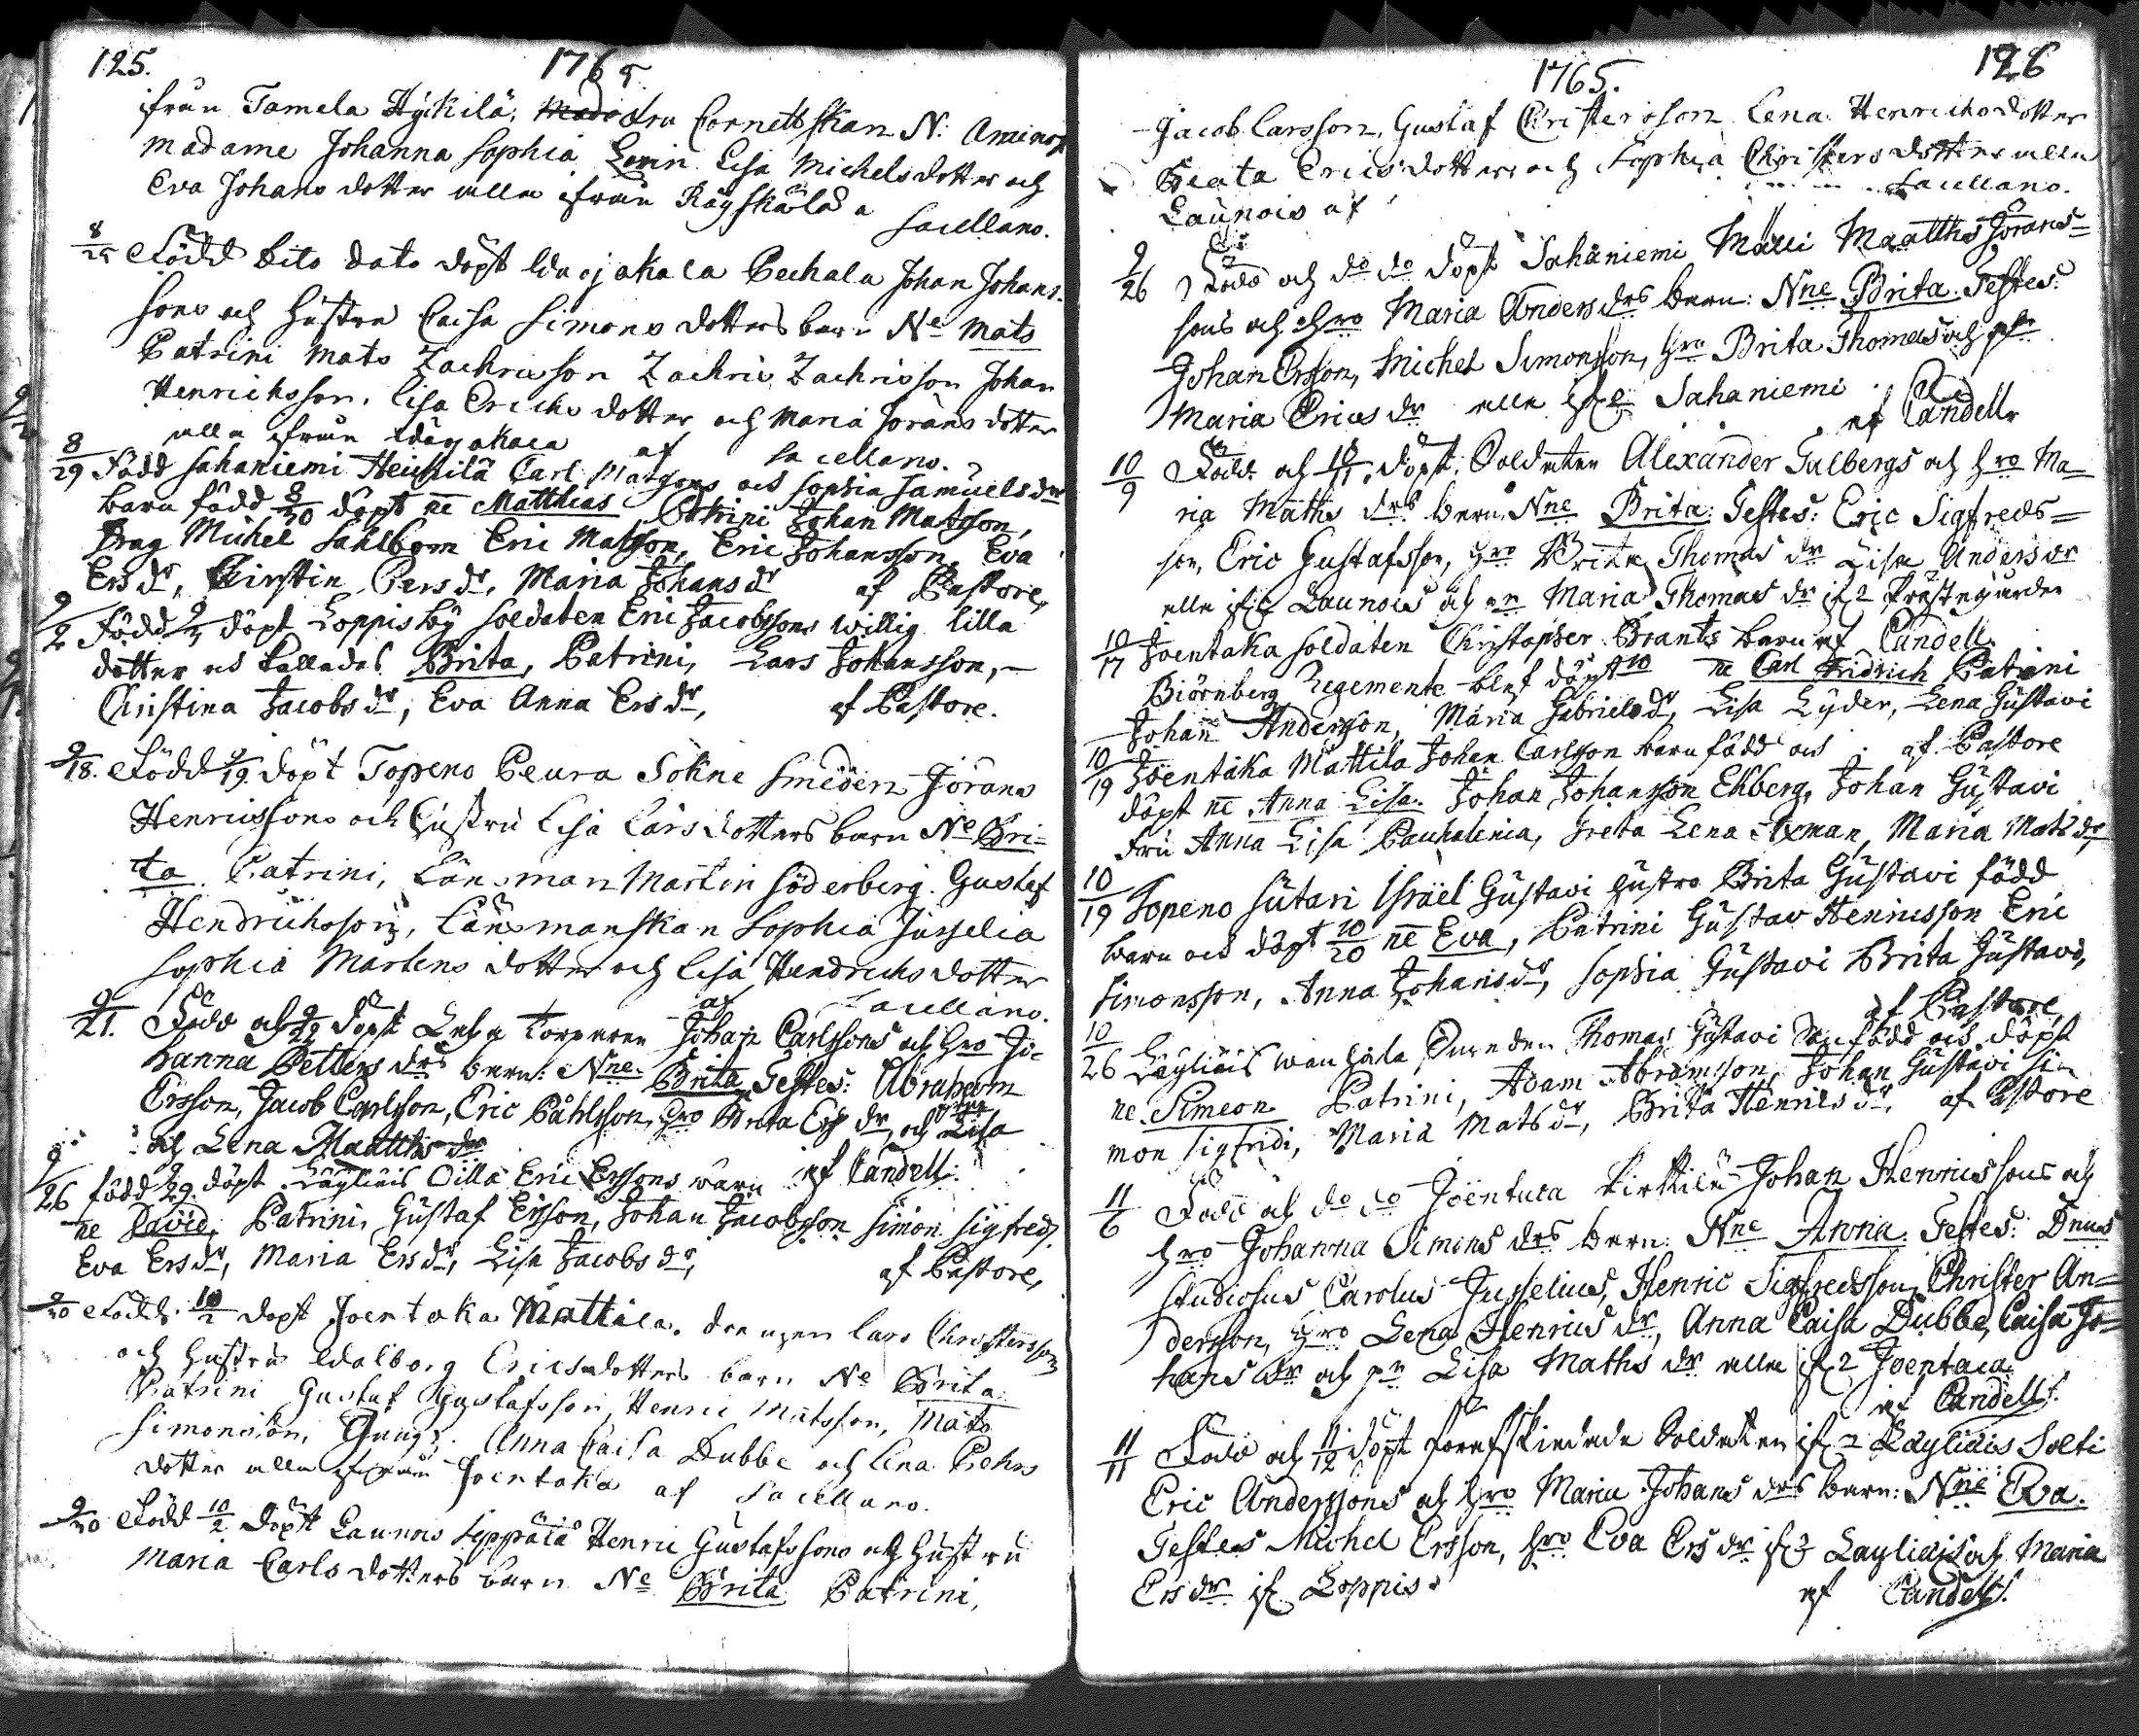 125. 1765.
ifrån Tamela Hÿkilä, fru Cornettskan N: Aminof
Madame Johanna Sophia Levin Lisa Michelsdotter och
Eva Johansdotter alla ifrån
Sacellano.
8/25 Född dito dato döpt Pechala Johan Johans
sons och hustru Caisa Simons dotters barn Ne Mats
Patrini Mats Zachrisson Zachris Zachrisson Johan
Henrichsson, Lisa Erichs dotter och Maria Jörans dotter
alla ifrån af Sacellano.
8/29 Född Sahaniemi Heickilä Carl Matssons och Sophia Samuels dr
barn född 8/30 döpt ne Matthias Patrini Johan Matsson,
Michel Sahlbom Eric Matsson, Eric Johansson Eva
Ers dr, Kirstin Pers dr, Maria Johans dr af Pastore,
9/2 Född döpt Loppis by Soldaten Eric Jacobssons Willig lilla
dotter och kallades Brita, Patrini, Lars Johansson,
Christina Jacobs dr, Eva Anna Ers dr, af Pastore.
9/18. Född 9/19. döpt Topeno Peura Sokne Smeden Jörans
Henricssons och hustru Lisa Lars dotters barn Ne Bri-
ta. Patrini, Länsman Martin Söderberg. Gustaf
Hendrichsson, Länsmanskan Sophia Juselia
Sophia Martens dotter och Lisa Hendrichs dotter
af Sacellano.
9/21. Född och 9/22 döpt torparen Johan Carlssons och hro Jo-
hanna Petters drs barn: Nne. Brita Testes: Abraham
Ersson, Jacob Carlsson, Eric Påhlsson, hro Brita Ers dr, och Lisa
och Lena Matths dr
9/26 född 9/29. döpt Läyliäis Cilla Eric Erssons barn af Candell.
ne David, Patrini, Gustaf Ersson, Johan Jacobsson Simon Sigfreds.
Eva Ers dr, Maria Ers dr, Lisa Jacobs dr, af Pastore,
9/30 Född 10/2 döpt Joentaka Mattila. drengen Lars Christersson
och hustru Walborg Ericsdotters barn Ne Brita
Patrini Gustaf Gustafsson, Henric Matsson, Mats
Simonsson, Anna Caisa Dubbe och Lena Piehrs
dotter alla ifrån Joentaka af Sacellano.
9/30 Född 10/2 döpt Launois Seppälä Henric Gustafssons och hustru
Maria Carls dotters barn Ne Brita Patrini,
1765. 126
Jacob Larsson, Gustaf Christersson Lena Henrichsdotter
Beata Ericsdotter, och Sophia Christersdotter alla
Launois af Sacellano.
9/26 Född och do do döpt Sahaniemi Matthis Jörans=
sons och hro Maria Anders drs barn: Nne Brita. Testes:
Johan Ersson, Michel Simonsson, hro Brita Thomas och
Maria Erics dr alla Sahaniemi
af Candell
10/9 Född och döpt. Soldaten Alexander Gulbergs och hro Ma-
ria Maths drs barn, Nne Brita: Testes: Eric Sigfreds=
son, Eric Gustafsson, hro Brita Thomas dr Lisa Anders dr
alla Launois och Maria Thomas dr Prästegården
10/17 Joentaka soldaten Christopher Brants barn af Candell.
Biörnberg Regemente blef döpt ne Carl Fridrich Patrini
Johan Andersson, Maria Gabriels dr, Lisa Lÿder, Lena Gustavi
10/19 Joentaka Mattila Johan Carlsson barn född och af Pastore
döpt ne Anna Lisa. Johan Johansson Ekberg, Johan Gustavi
Fru Anna Lisa Pauhalinia, Greta Lena Axman, Maria Mats dr
10/19 Topeno Sutari Israel Gustavi hustro Brita Gustavi född
barn och döpt 10/20 ne Eva, Patrini Gustav Henricsson Eric
Simonsson, Anna Johans dr, Sophia Gustavi Brita Gustavi,
af Pastore,
10/26 Läyliäis Thomas Gustavi Son född och döpt
ne. Simeon Patrini, Adam Abramsson, Johan Gustavi Si-
mon Sigfridi, Maria Mats dr, Brita Henrics dr, af Pastore
11/6 Född och do do Joentaca Kirkkilä Johan Henricssons och
hro Johanna Simons drs barn: Nne Anna. Testes: Dnus
Studiosus Carolus Juselius, Henric Sigfredsson, Christer An=
dersson, hro Lena Henrics dr, Anna Caisa Dubbe, Caisa Jo=
hans dr och Lisa Maths dr alla Joentaca.
af Candell.
11/11 Född och 11/12 döpt Soldaten Läyliäis Solti
Eric Anderssons och hro Maria Johans drs barn: Nne Eva.
Testes Michel Ersson, hro Eva Ers dr Läyliäis och Maria
Ers dr if Loppis.
af Candell.